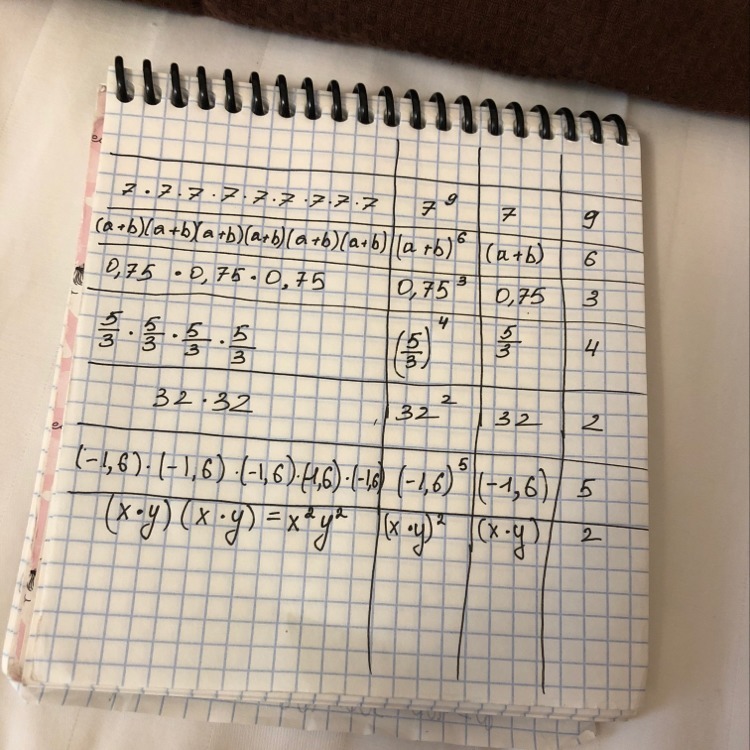 7·7·7·7·7·7·7·7·7 7⁹ 7 9
(a+b)(a+b)(a+b)(a+b)(a+b)(a+b) (a+b)⁶ (a+b) 6
0,75 · 0,75 · 0,75 0,75³ 0,75 3
5/3 · 5/3 · 5/3 · 5/3 (5/3)⁴ 5/3 4
32·32 32² 32 2
(-1,6)·(-1,6)·(-1,6)·(-1,6)·(-1,6) (-1,6)⁵ (-1,6) 5
(x·y)(x·y)=x²y² (x·y)² (x·y) 2